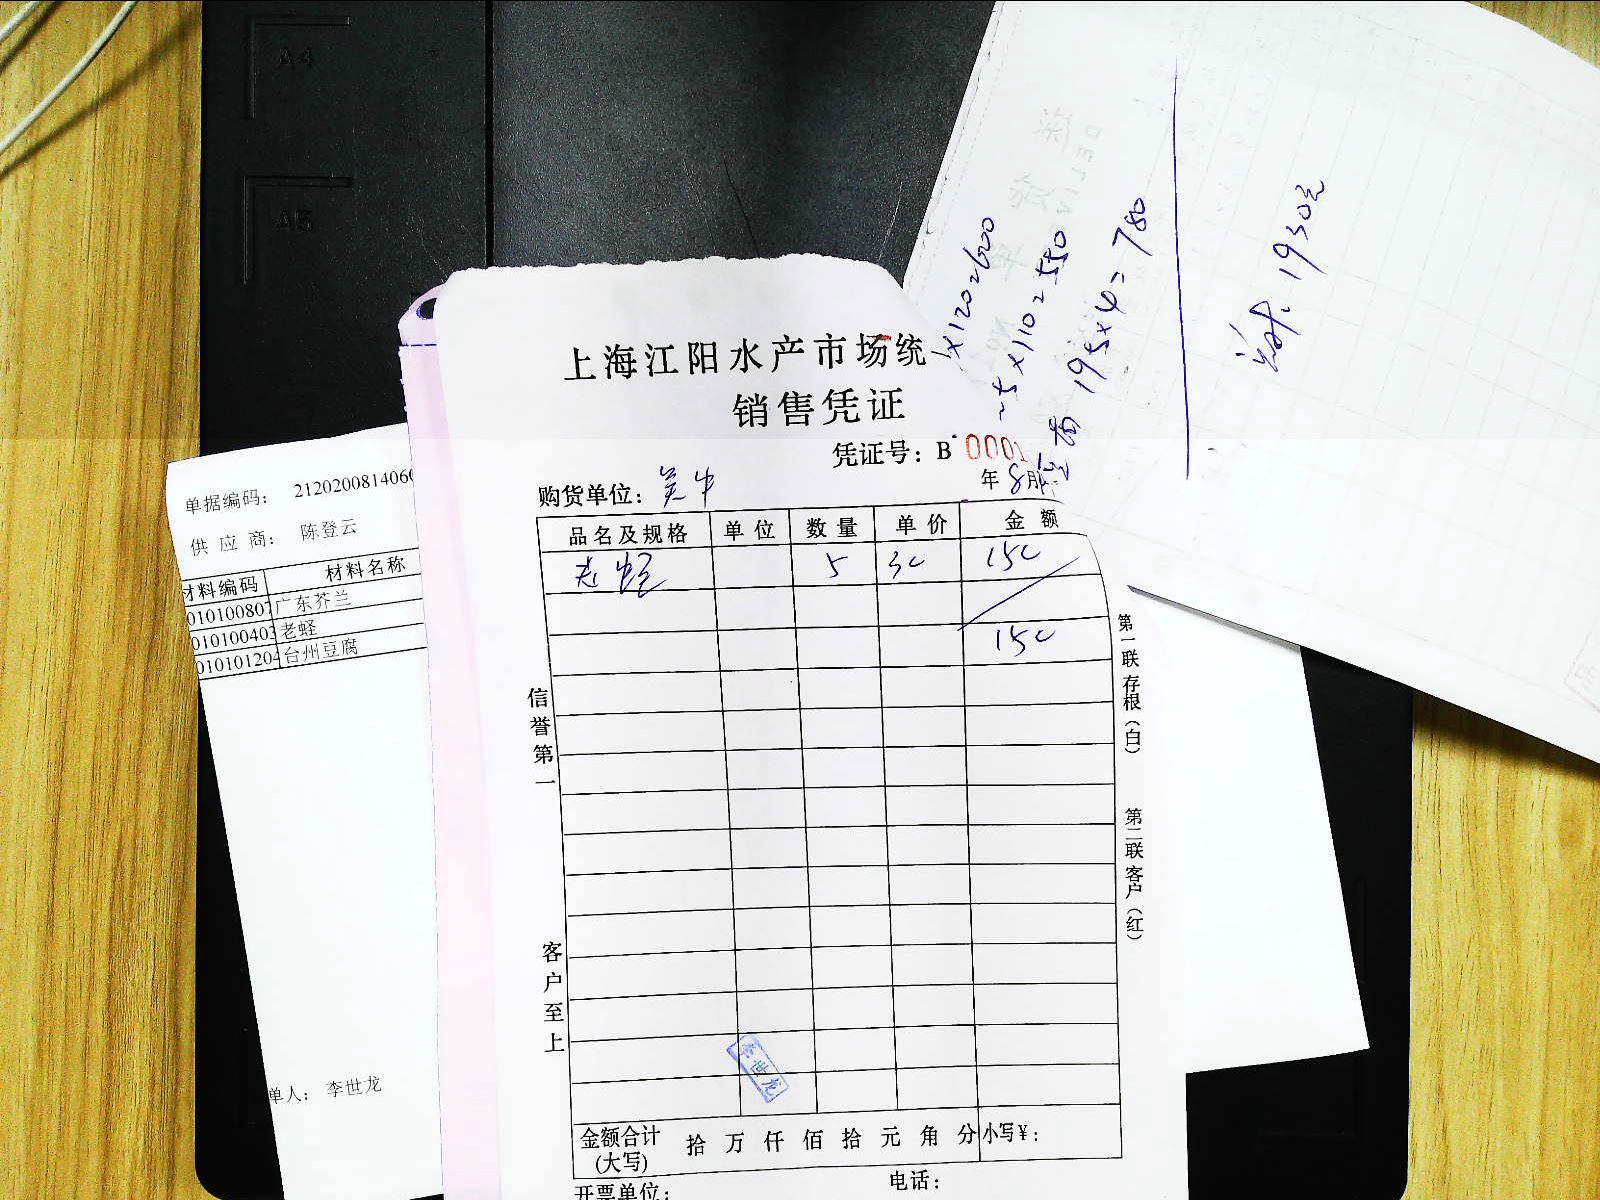 A4
A5
单据编码： 2120200814060
供 应 商： 陈登云
材料编码 材料名称
010100807 广东芥兰
010100403 老蛏
010101204 台州豆腐
单人： 李世龙
上海江阳水产市场统
销售凭证
凭证号：B 0001
购货单位：
年 8月
品名及规格 单位 数量 单价 金额
老蛏 5 30 150
150
信誉第一
客户至上
第一联存根（白）
第二联客户（红）
李世龙
金额合计（大写） 拾 万 仟 佰 拾 元 角 分 小写￥：
开票单位： 电话：
x120=600
5x110=550
195x4=780
1930元